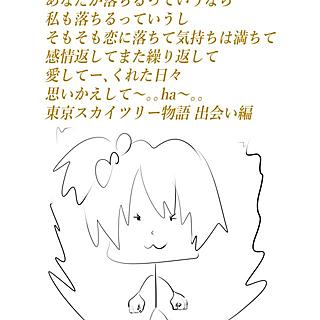 あなたが落ちるっていうなら
私も落ちるっていうし
そもそも恋に落ちて気持ちは満ちて
感情返してまた繰り返して
愛してー、くれた日々
思いかえして〜。。ha〜。。
東京スカイツリー物語 出会い編